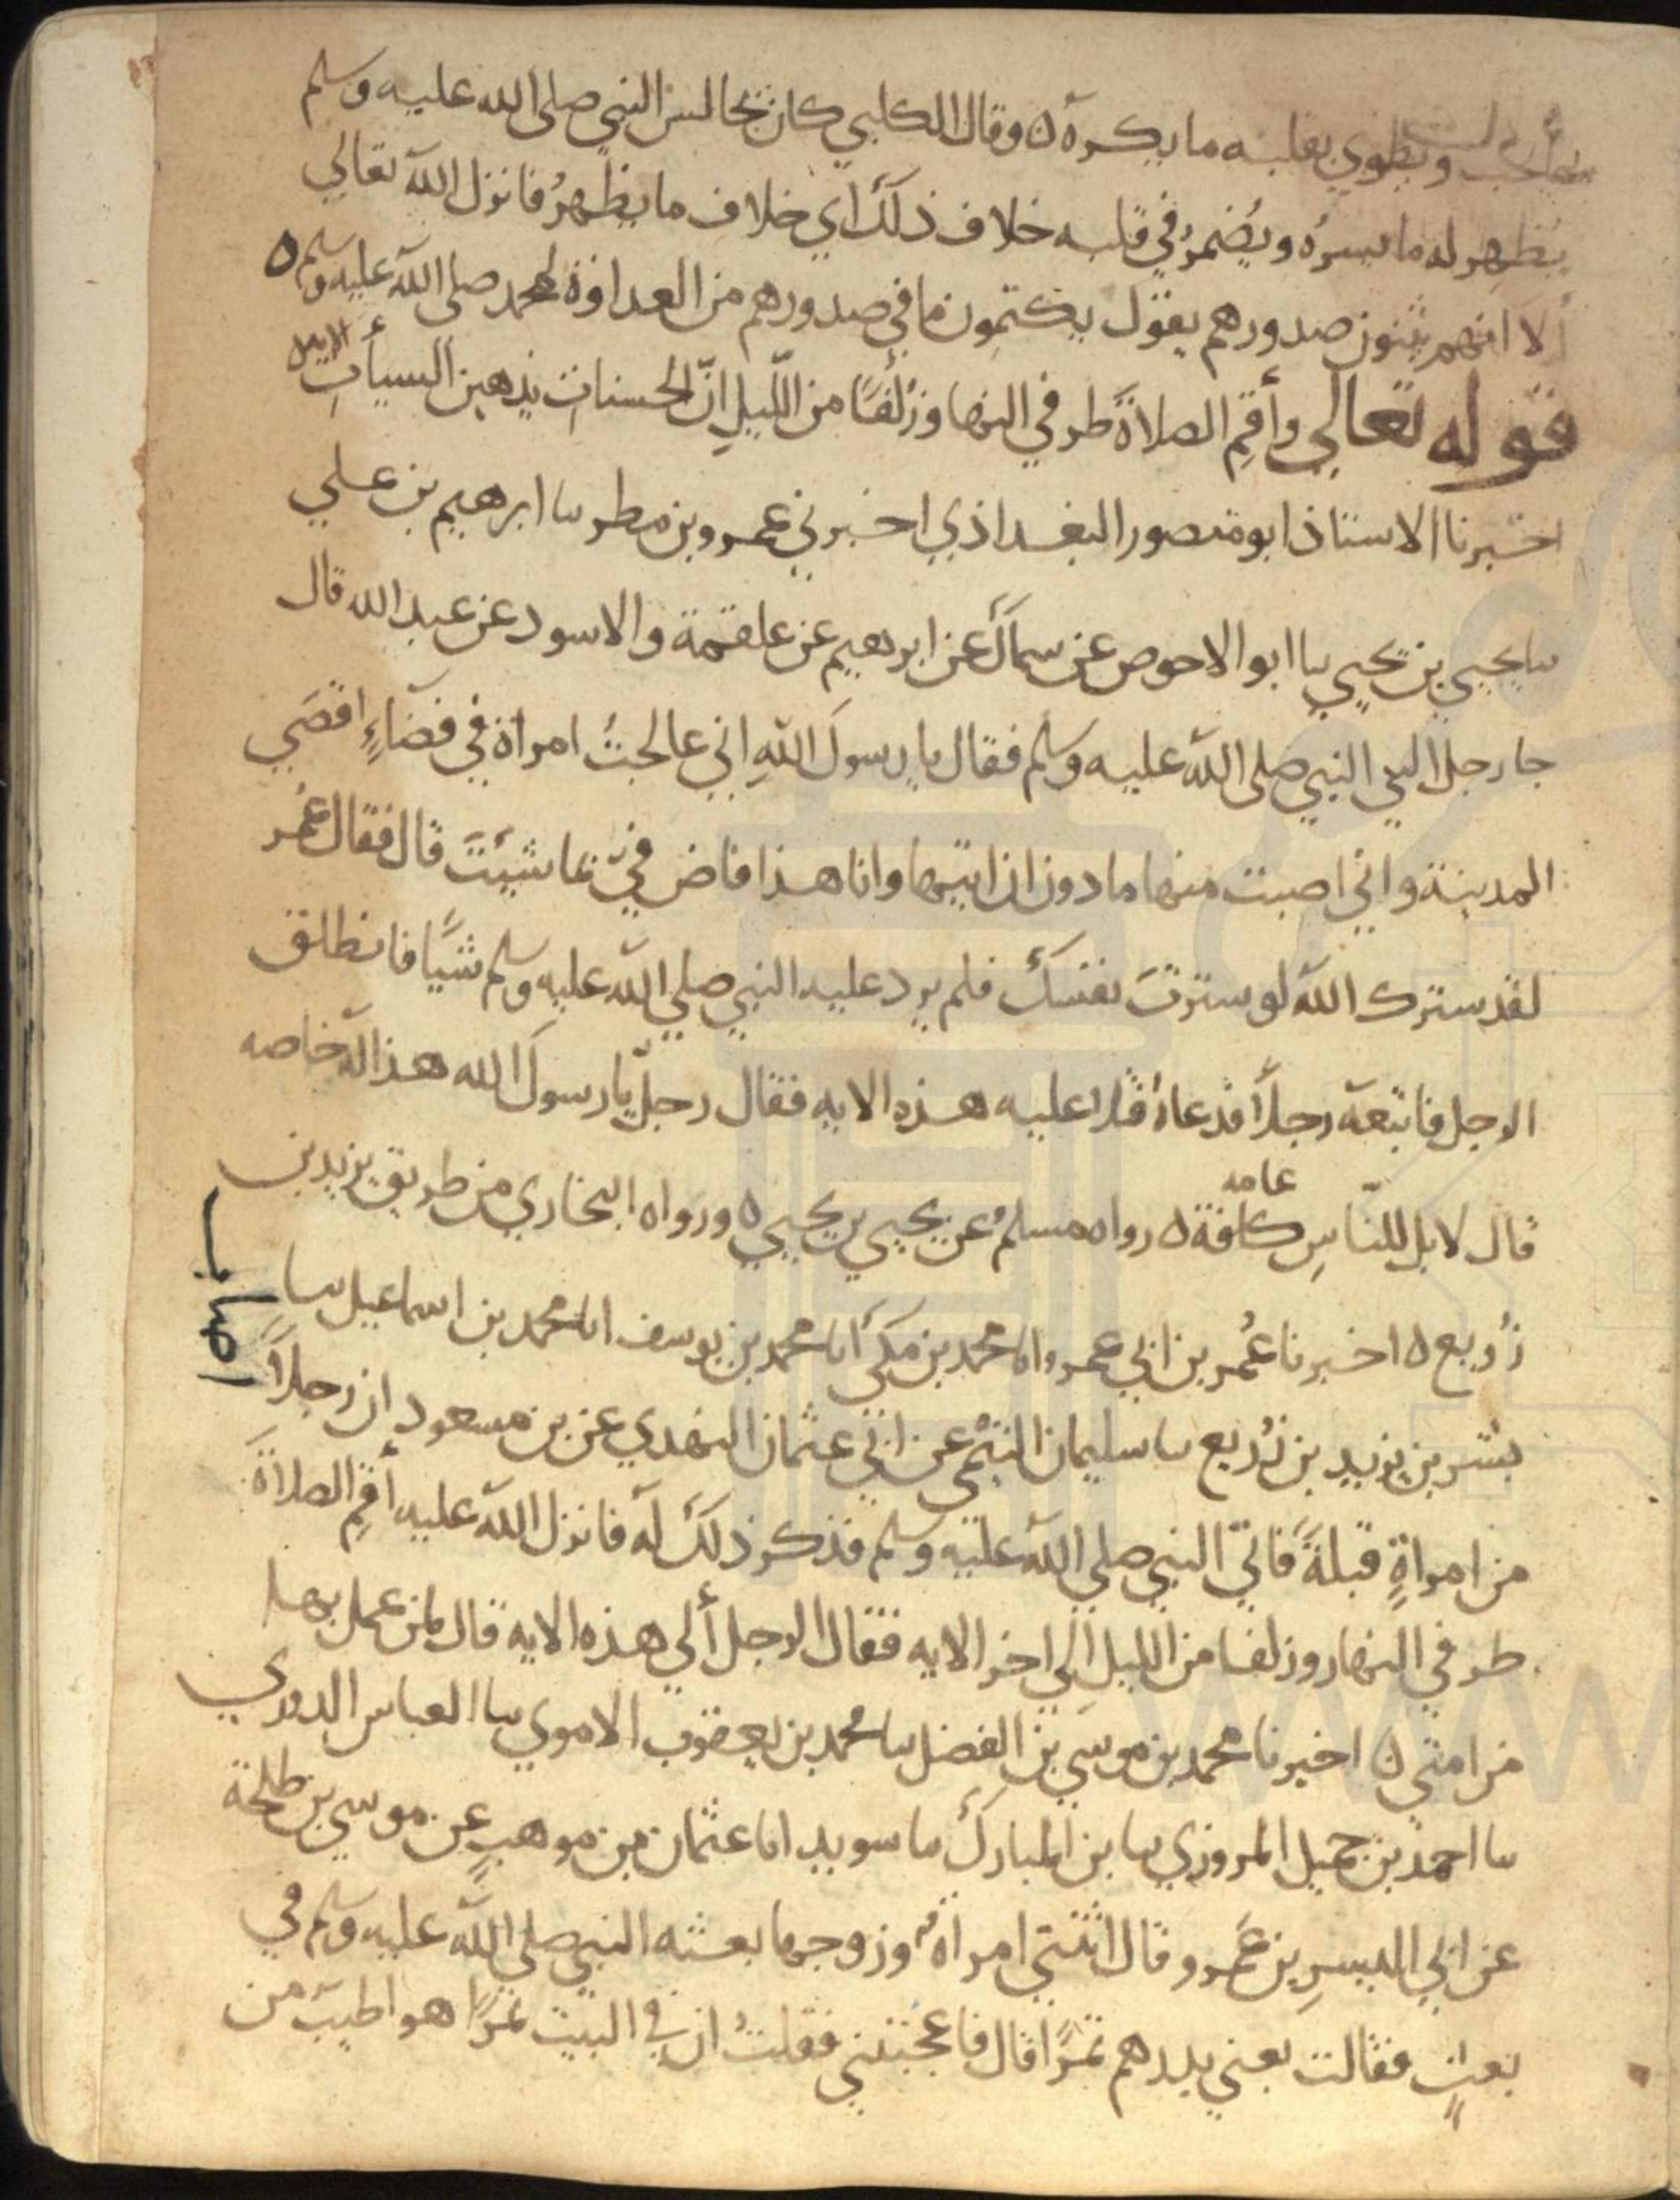 يحب ويطوي بقلبه ما يكره ٥ وقال الكلبي كان يجالس النبي صلى الله عليه وسلم
يُظهِر له ما يسره ويُضمرُ في قلبه خلاف ذلك اي خلاف ما يظهرُ فانزل الله تعالي
ألا انهم يثنون صدورهم يقول يكتمون ما في صدورهم من العداوة لمحمد صلى الله عليه وسلم ٥
قوله تعالي وأقِمِ الصلاةَ طرفي النها وزُلَفًا من اللّيلِ انّ الحسناتِ يذهبن السيأتِ الايه
اخبرنا الاستاذ ابو منصور البغداذي اخبرني عمرو بن مطر سا ابرهيم بن علي
سا يحيي بن يحيي سا ابو الاحوص عن سماك عن ابرهيم عن علقمة والاسود عن عبد الله قال
جا رجل الي النبي صلى الله عليه وسلم فقال يا رسولَ اللهِ اني عالجتُ امراة في قضَاءِ اقصَي
المدينة واني اصبت منها ما دون ان اتيها وانا هذا فاض فيّ ما شيتَ قال فقال عُمر
لقد سترك الله لو سترتَ نفسك فلم يرد عليه النبي صلي الله عليه وسلم شيًا فانطلق
الرجل فاتبعه رجلاً فدعاهُ فتلا عليه هذه الايه فقال رجلٌ يا رسولَ الله هذا له خاصه
عامه
قال لا بل للنّاسِ كافة ٥ رواه مسلمُ عن يحيي بن يحيي ٥ ورواه البخاري من طريق يزيد بن
زُريع ٥ اخبرنا عُمر بن ابي عمرو انا محمد بن مكي انا محمد بن يوسف انا محمد بن اسماعيل سا
بشر بن يزيد بن زُريع سا سليمان التيمي عن ابي عثمان النهدي عن بن مسعود ان رجلاً
اصاب
من امراةٍ قبلةً فاتي النبي صلي الله عليه وسلم فذكر ذلك له فانزل الله عليه أقِمِ الصلاةَ
طرفي النهار وزلفا من الليلِ الي اخر الايه فقال الرجل ألي هذه الايه قال لمن عمل بها
من امتي ٥ اخبرنا محمد بن موسي بن الفضل سا محمد بن يعقوب الاموي سا العباس الدوري
سا احمد بن جميل المروزي سا بن المبارك سا سويد انا عثمان بن موهبٍ عن موسي بن طلحة
عن ابي اليسرِ بن عَمرو قال اتتني امراة وزوجها بعثه النبي صلي الله عليه وسلم في
بعثٍ فقالت بعني بدرهم تمرًا قال فاعجبتني فقلتُ ان في البيت تمرًا هو اطيب من